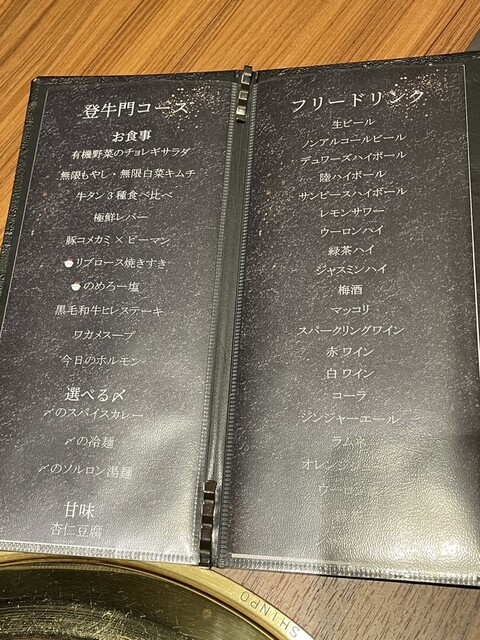 登牛門コース
お食事
有機野菜のチョレギサラダ
無限もやし・無限白菜キムチ
牛タン3種食べ比べ
極鮮レバー
豚コメカミ×ピーマン
🍚リブロース焼きすき
🍚のめろー塩
黒毛和牛ヒレステーキ
ワカメスープ
今日のホルモン
選べる〆
〆のスパイスカレー
〆の冷麺
〆のソルロン湯麺
甘味
杏仁豆腐
フリードリンク
生ビール
ノンアルコールビール
デュワーズハイボール
陸ハイボール
サンピースハイボール
レモンサワー
ウーロンハイ
緑茶ハイ
ジャスミンハイ
梅酒
マッコリ
スパークリングワイン
赤ワイン
白ワイン
コーラ
ジンジャーエール
ラムネ
オレンジジ
ウーロン
SHINPO